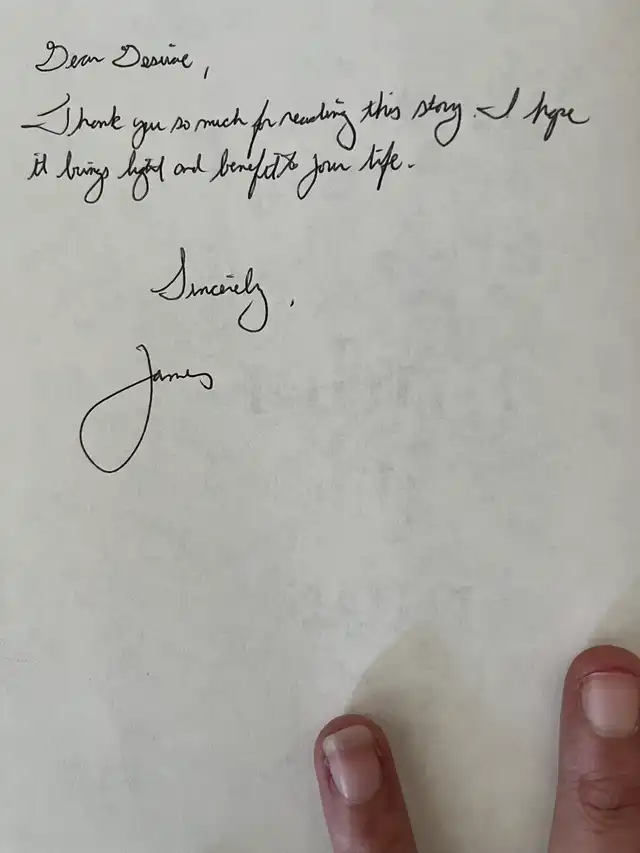 Dear Desirae,
Thank you so much for reading this story. I hope
it brings light and benefit to your life.
Sincerely,
James